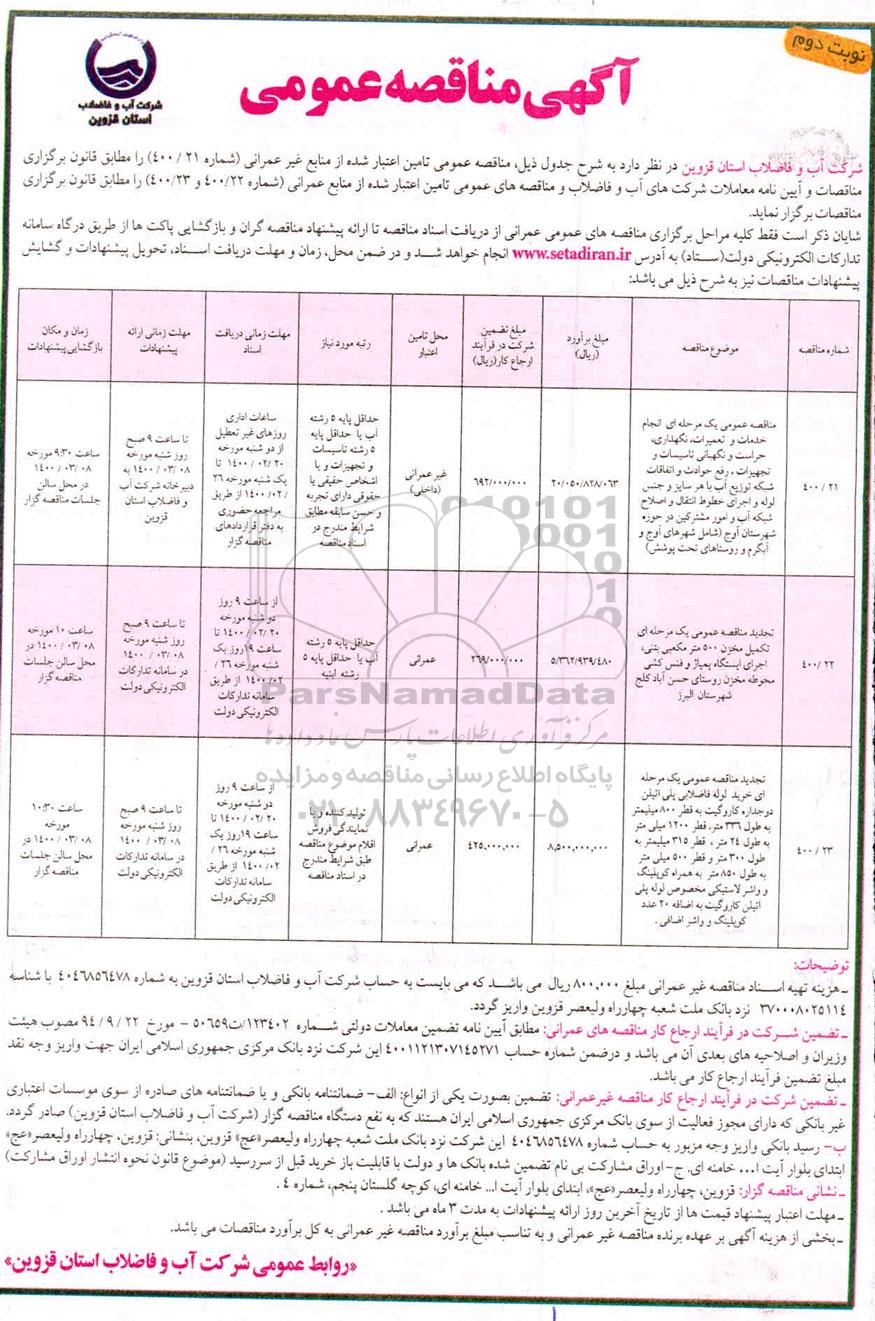 نوبت دوم
آگهی مناقصه عمومی
شرکت آب و فاضلاب
استان قزوین
شرکت آب و فاضلاب استان قزوین در نظر دارد به شرح جدول ذیل، مناقصه عمومی تامین اعتبار شده از منابع غیر عمرانی (شماره ۲۱ / ۴۰۰) را مطابق قانون برگزاری
مناقصات و آیین نامه معاملات شرکت های آب و فاضلاب و مناقصه های عمومی تامین اعتبار شده از منابع عمرانی (شماره ۴۰۰/۲۲ و ۴۰۰/۲۳) را مطابق قانون برگزاری
مناقصات برگزار نماید.
شایان ذکر است فقط کلیه مراحل برگزاری مناقصه های عمومی عمرانی از دریافت اسناد مناقصه تا ارائه پیشنهاد مناقصه گران و بازگشایی پاکت ها از طریق درگاه سامانه
تدارکات الکترونیکی دولت(ستاد) به آدرس www.setadiran.ir انجام خواهد شد و در ضمن محل، زمان و مهلت دریافت اسناد، تحویل پیشنهادات و گشایش
پیشنهادات مناقصات نیز به شرح ذیل می باشد:
شماره مناقصه
موضوع مناقصه
مبلغ برآورد
(ریال)
مبلغ تضمین
شرکت در فرآیند
ارجاع کار(ریال)
محل تامین
اعتبار
رتبه مورد نیاز
مهلت زمانی دریافت
اسناد
مهلت زمانی ارائه
پیشنهادات
زمان و مکان
بازگشایی پیشنهادات
۴۰۰ / ۲۱
مناقصه عمومی یک مرحله ای انجام
خدمات و تعمیرات، نگهداری،
حراست و نگهبانی تاسیسات و
تجهیزات ، رفع حوادث و اتفاقات
شبکه توزیع آب با هر سایز و جنس
لوله و اجرای خطوط انتقال و اصلاح
شبکه آب و امور مشترکین در حوزه
شهرستان آوج (شامل شهرهای آوج و
آبگرم و روستاهای تحت پوشش)
۲۰/۰۵۰/۸۲۸/۰۶۳
۶۹۲/۰۰۰/۰۰۰
غیر عمرانی
(داخلی)
حداقل پایه ۵ رشته
آب یا حداقل پایه
۵ رشته تاسیسات
و تجهیزات و یا
اشخاص حقیقی یا
حقوقی دارای تجربه
و حسن سابقه مطابق
شرایط مندرج در
اسناد مناقصه
ساعات اداری
روزهای غیر تعطیل
از دو شنبه مورخه
۲۰ /۰۲ / ۱۴۰۰ تا
یک شنبه مورخه ۲۶
/ ۰۲/ ۱۴۰۰ از طریق
مراجعه حضوری
به دفتر قراردادهای
مناقصه گزار
تا ساعت ۹ صبح
روز شنبه مورخه
۰۸ / ۰۳ / ۱۴۰۰ به
دبیر خانه شرکت آب
و فاضلاب استان
قزوین
ساعت ۹:۳۰ مورخه
۰۸ / ۰۳ / ۱۴۰۰
در محل سالن
جلسات مناقصه گزار
۴۰۰/ ۲۲
تجدید مناقصه عمومی یک مرحله ای
تکمیل مخزن ۵۰۰ متر مکعبی بتنی،
اجرای ایستگاه پمپاژ و فنس کشی
محوطه مخزن روستای حسن آباد کلج
شهرستان البرز
۵/۳۶۲/۹۳۹/۴۸۰
۲۶۹/۰۰۰/۰۰۰
عمرانی
حداقل پایه ۵ رشته
آب یا حداقل پایه ۵
رشته ابنیه
از ساعت ۹ روز
دو شنبه مورخه
۲۰ /۰۲ / ۱۴۰۰ تا
ساعت ۱۹روز یک
شنبه مورخه ۲۶ /
۱۴۰۰/۰۲ از طریق
سامانه تدارکات
الکترونیکی دولت
تا ساعت ۹ صبح
روز شنبه مورخه
۰۸ / ۰۳ / ۱۴۰۰
در سامانه تدارکات
الکترونیکی دولت
ساعت ۱۰ مورخه
۰۸ / ۰۳ / ۱۴۰۰ در
محل سالن جلسات
مناقصه گزار
۴۰۰ / ۲۳
تجدید مناقصه عمومی یک مرحله
ای خرید لوله فاضلابی پلی اتیلن
دوجداره کاروگیت به قطر ۸۰۰ میلیمتر
به طول ۳۳۶ متر، قطر ۱۲۰۰ میلی متر
به طول ۲۴ متر ، قطر ۳۱۵ میلیمتر به
طول ۳۰۰ متر و قطر ۵۰۰ میلی متر
به طول ۸۵۰ متر به همراه کوپلینگ
و واشر لاستیکی مخصوص لوله پلی
اتیلن کاروگیت به اضافه ۲۰ عدد
کوپلینگ و واشر اضافی .
۸,۵۰۰,۰۰۰,۰۰۰
۴۲۵,۰۰۰,۰۰۰
عمرانی
تولید کننده و یا
نمایندگی فروش
اقلام موضوع مناقصه
طبق شرایط مندرج
در اسناد مناقصه
از ساعت ۹ روز
دو شنبه مورخه
۲۰ /۰۲ / ۱۴۰۰ تا
ساعت ۱۹روز یک
شنبه مورخه ۲۶ /
۰۲/ ۱۴۰۰ از طریق
سامانه تدارکات
الکترونیکی دولت
تا ساعت ۹ صبح
روز شنبه مورخه
۰۸ / ۰۳ / ۱۴۰۰
در سامانه تدارکات
الکترونیکی دولت
ساعت ۱۰:۳۰
مورخه
۰۸ / ۰۳ / ۱۴۰۰ در
محل سالن جلسات
مناقصه گزار
ParsNamadData
مرکز فرآوری اطلاعات پارس نماد داده ها
پایگاه اطلاع رسانی مناقصه و مزایده
۰۲۱-۸۸۳۴۹۶۷۰-۵
توضیحات:
ـ هزینه تهیه اسناد مناقصه غیر عمرانی مبلغ ۸۰۰,۰۰۰ ریال می باشد که می بایست به حساب شرکت آب و فاضلاب استان قزوین به شماره ۴۰۴۶۸۵۶۴۷۸ با شناسه
۳۷۰۰۰۸۰۲۵۱۱۴ نزد بانک ملت شعبه چهارراه ولیعصر قزوین واریز گردد.
ـ تضمین شرکت در فرآیند ارجاع کار مناقصه های عمرانی: مطابق آیین نامه تضمین معاملات دولتی شماره ۱۲۳۴۰۲/ت۵۰۶۵۹ - مورخ ۲۲ / ۹ / ۹۴ مصوب هیئت
وزیران و اصلاحیه های بعدی آن می باشد و درضمن شماره حساب ۴۰۰۱۱۲۱۳۰۷۱۴۵۲۷۱ این شرکت نزد بانک مرکزی جمهوری اسلامی ایران جهت واریز وجه نقد
مبلغ تضمین فرآیند ارجاع کار می باشد.
ـ تضمین شرکت در فرآیند ارجاع کار مناقصه غیرعمرانی: تضمین بصورت یکی از انواع: الف- ضمانتنامه بانکی و یا ضمانتنامه های صادره از سوی موسسات اعتباری
غیر بانکی که دارای مجوز فعالیت از سوی بانک مرکزی جمهوری اسلامی ایران هستند که به نفع دستگاه مناقصه گزار (شرکت آب و فاضلاب استان قزوین) صادر گردد.
ب- رسید بانکی واریز وجه مزبور به حساب شماره ۴۰۴۶۸۵۶۴۷۸ این شرکت نزد بانک ملت شعبه چهارراه ولیعصر«عج» قزوین، بنشانی: قزوین، چهارراه ولیعصر«عج»
ابتدای بلوار آیت ا... خامنه ای. ج- اوراق مشارکت بی نام تضمین شده بانک ها و دولت با قابلیت باز خرید قبل از سررسید (موضوع قانون نحوه انتشار اوراق مشارکت)
ـ نشانی مناقصه گزار: قزوین، چهارراه ولیعصر«عج»، ابتدای بلوار آیت ا... خامنه ای، کوچه گلستان پنجم، شماره ۴ .
ـ مهلت اعتبار پیشنهاد قیمت ها از تاریخ آخرین روز ارائه پیشنهادات به مدت ۳ ماه می باشد .
ـ بخشی از هزینه آگهی بر عهده برنده مناقصه غیر عمرانی و به تناسب مبلغ برآورد مناقصه غیر عمرانی به کل برآورد مناقصات می باشد.
«روابط عمومی شرکت آب و فاضلاب استان قزوین»